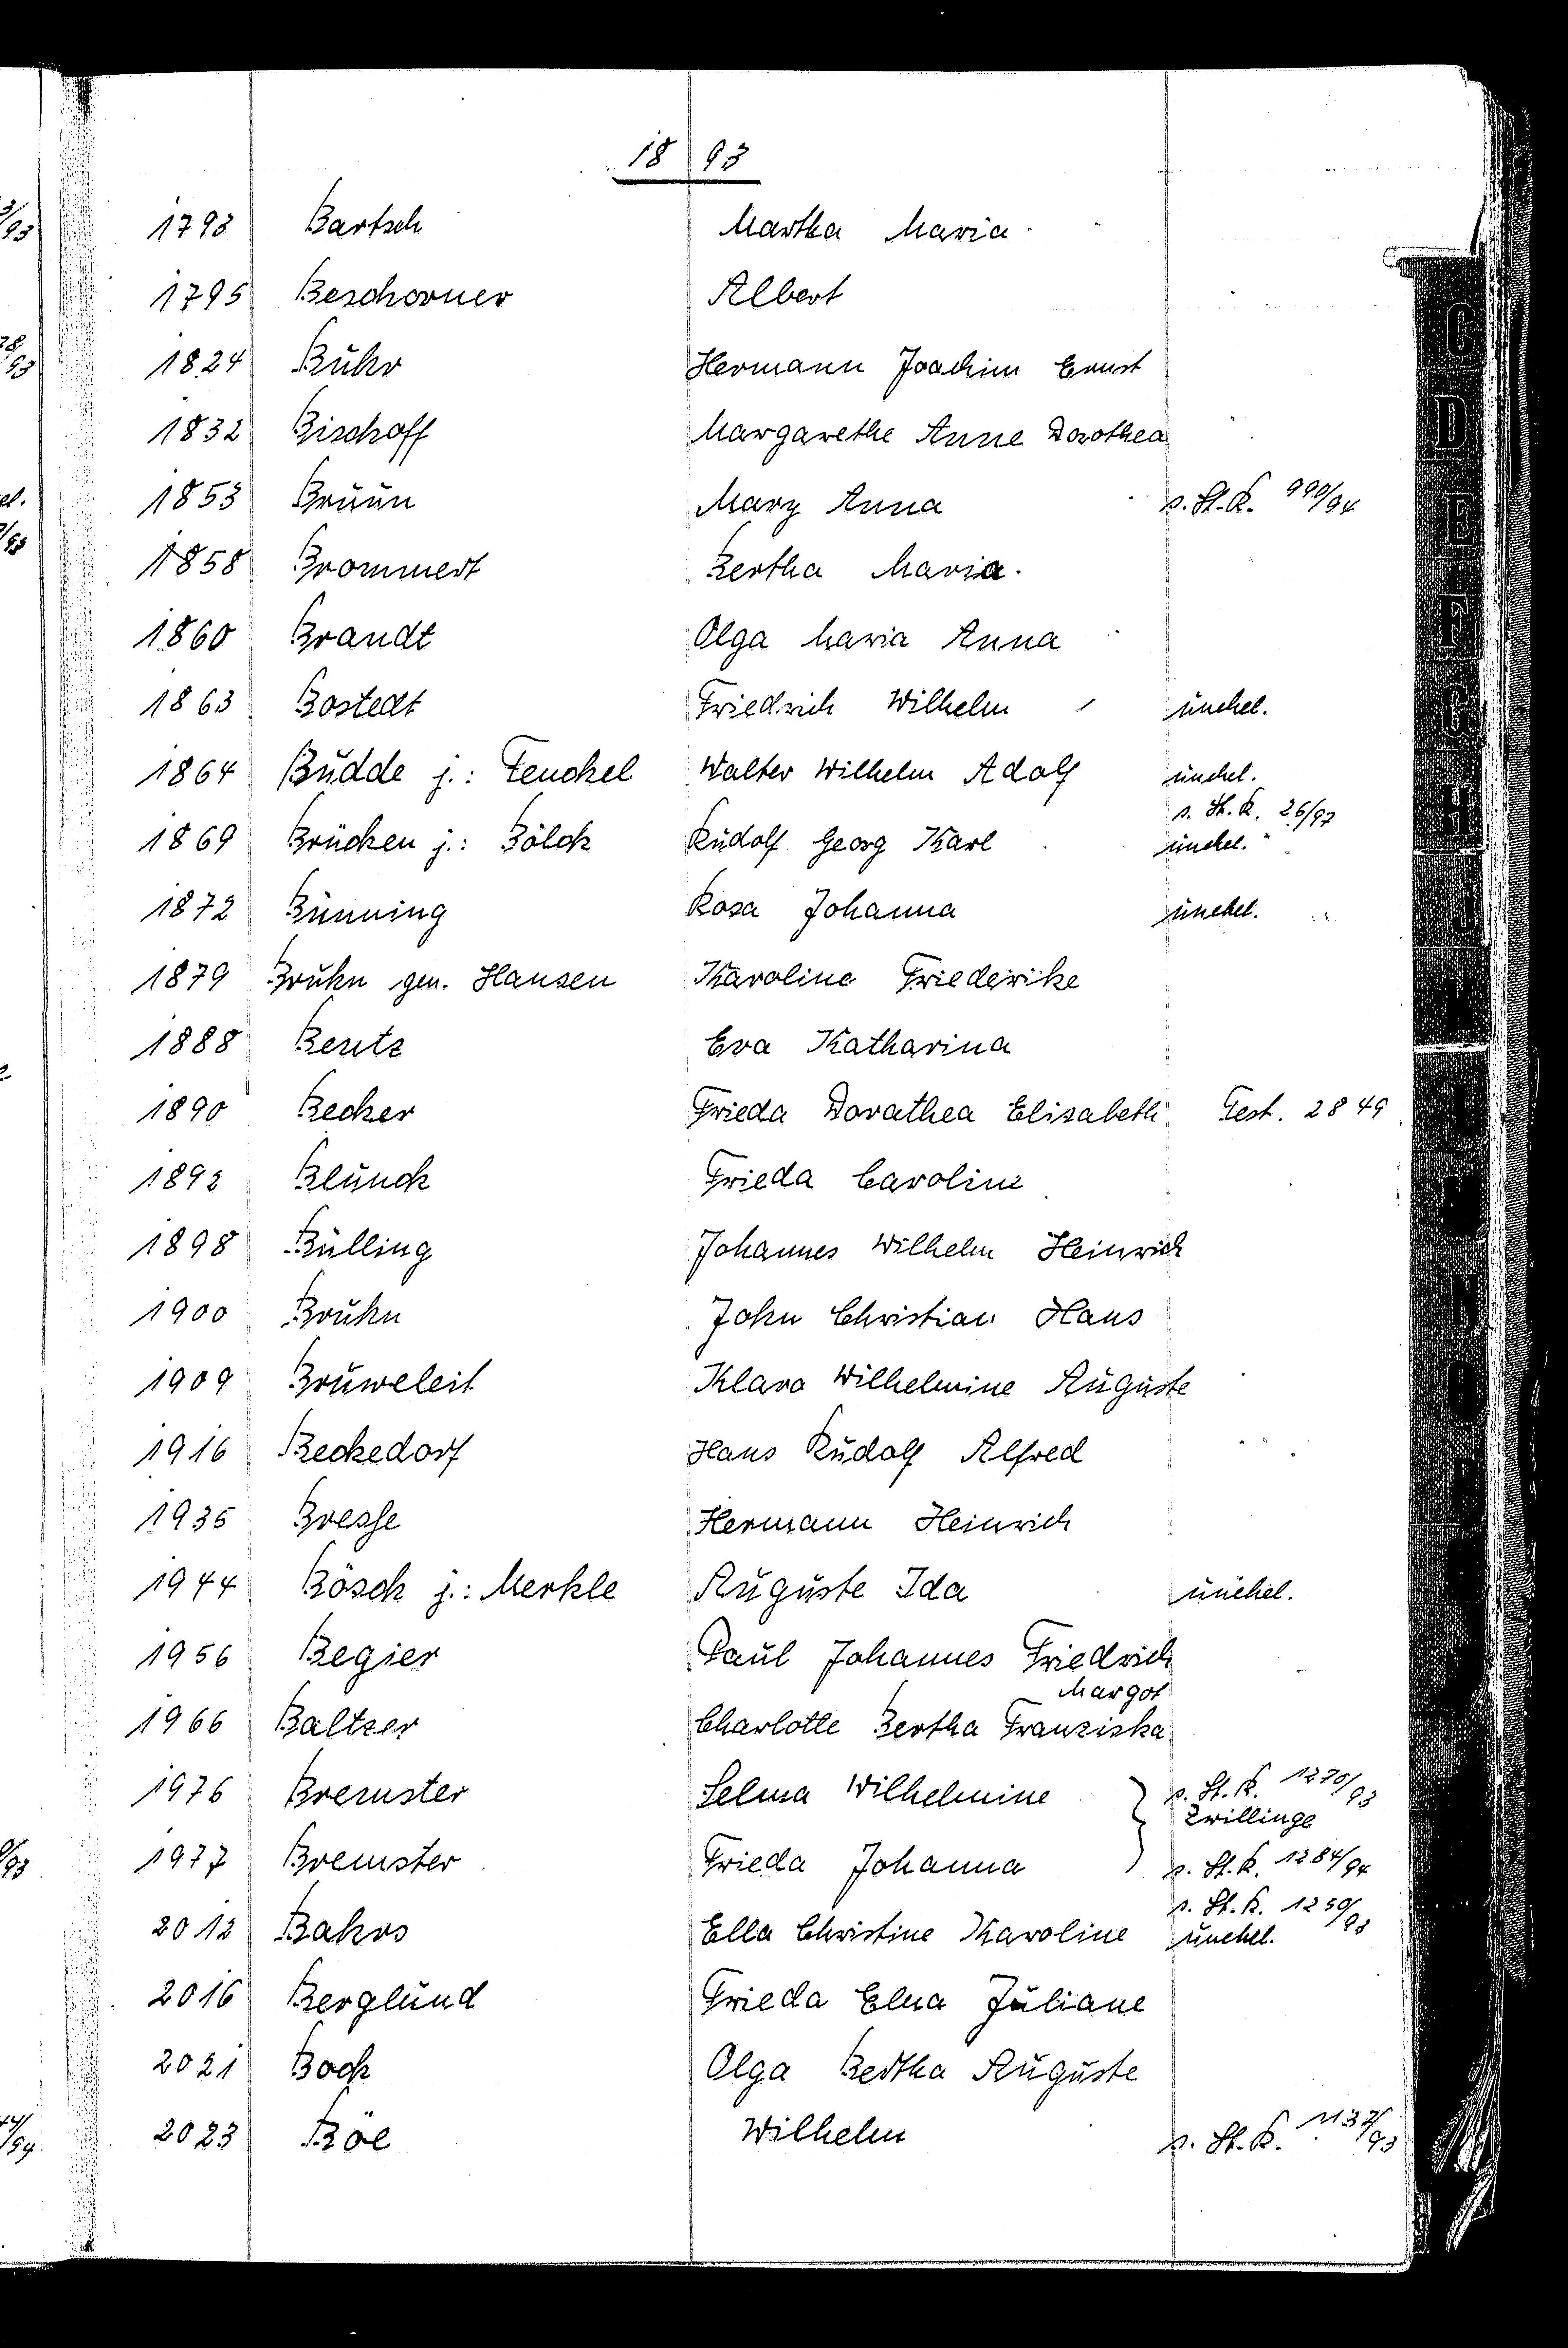 18 93
1793 Bartsch Martha Maria
1795 Beschorner Albert
1824 Buhr Hermann Joachim Ernst
1832 Bischoff Margarethe Anne Dorothea
1853 Bruun Mary Anna s. St. R. 990/94
1858 Brommert Bertha Maria.
1860 Brandt Olga Maria Anna
1863 Bostedt Friedrich Wilhelm unehel.
1864 Budde j.: Fenckel Walter Wilhelm Adolf unehel.
s. St. R. 26/97
1869 Brücken j.: Bölck Rudolf Georg Karl unehel.
1872 Bünning Rosa Johanna unehel.
1879 Bruhn gen. Hansen Karoline Friederike
1888 Bentz Eva Katharina
1890 Becker Frieda Dorathea Elisabeth Test. 2849
1892 Blunck Frieda Caroline
1898 Bülling Johannes Wilhelm Heinrich
1900 Bruhn John Christian Hans
1909 Bruweleit Klara Wilhelmine Auguste
1916 Beckedorf Hans Rudolf Alfred
1935 Bresse Hermann Heinrich
1944 Bösch j.: Merkle Auguste Ida unehel.
1956 Begier Paul Johannes Friedrich
Margot
1966 Baltzer Charlotte Bertha Franziska
1976 Bremster Selma Wilhelmine s. St. R. 1270/93
Zwillinge
1977 Bremster Frieda Johanna s. St. R. 1284/94
s. St. R. 1250/93
2012 Bahrs Ella Christine Karoline unehel.
2016 Berglund Frieda Elna Juliane
2021 Bock Olga Bertha Auguste
2023 Böe Wilhelm s. St. R. 1137/93
C
D
E
F
G
H
J